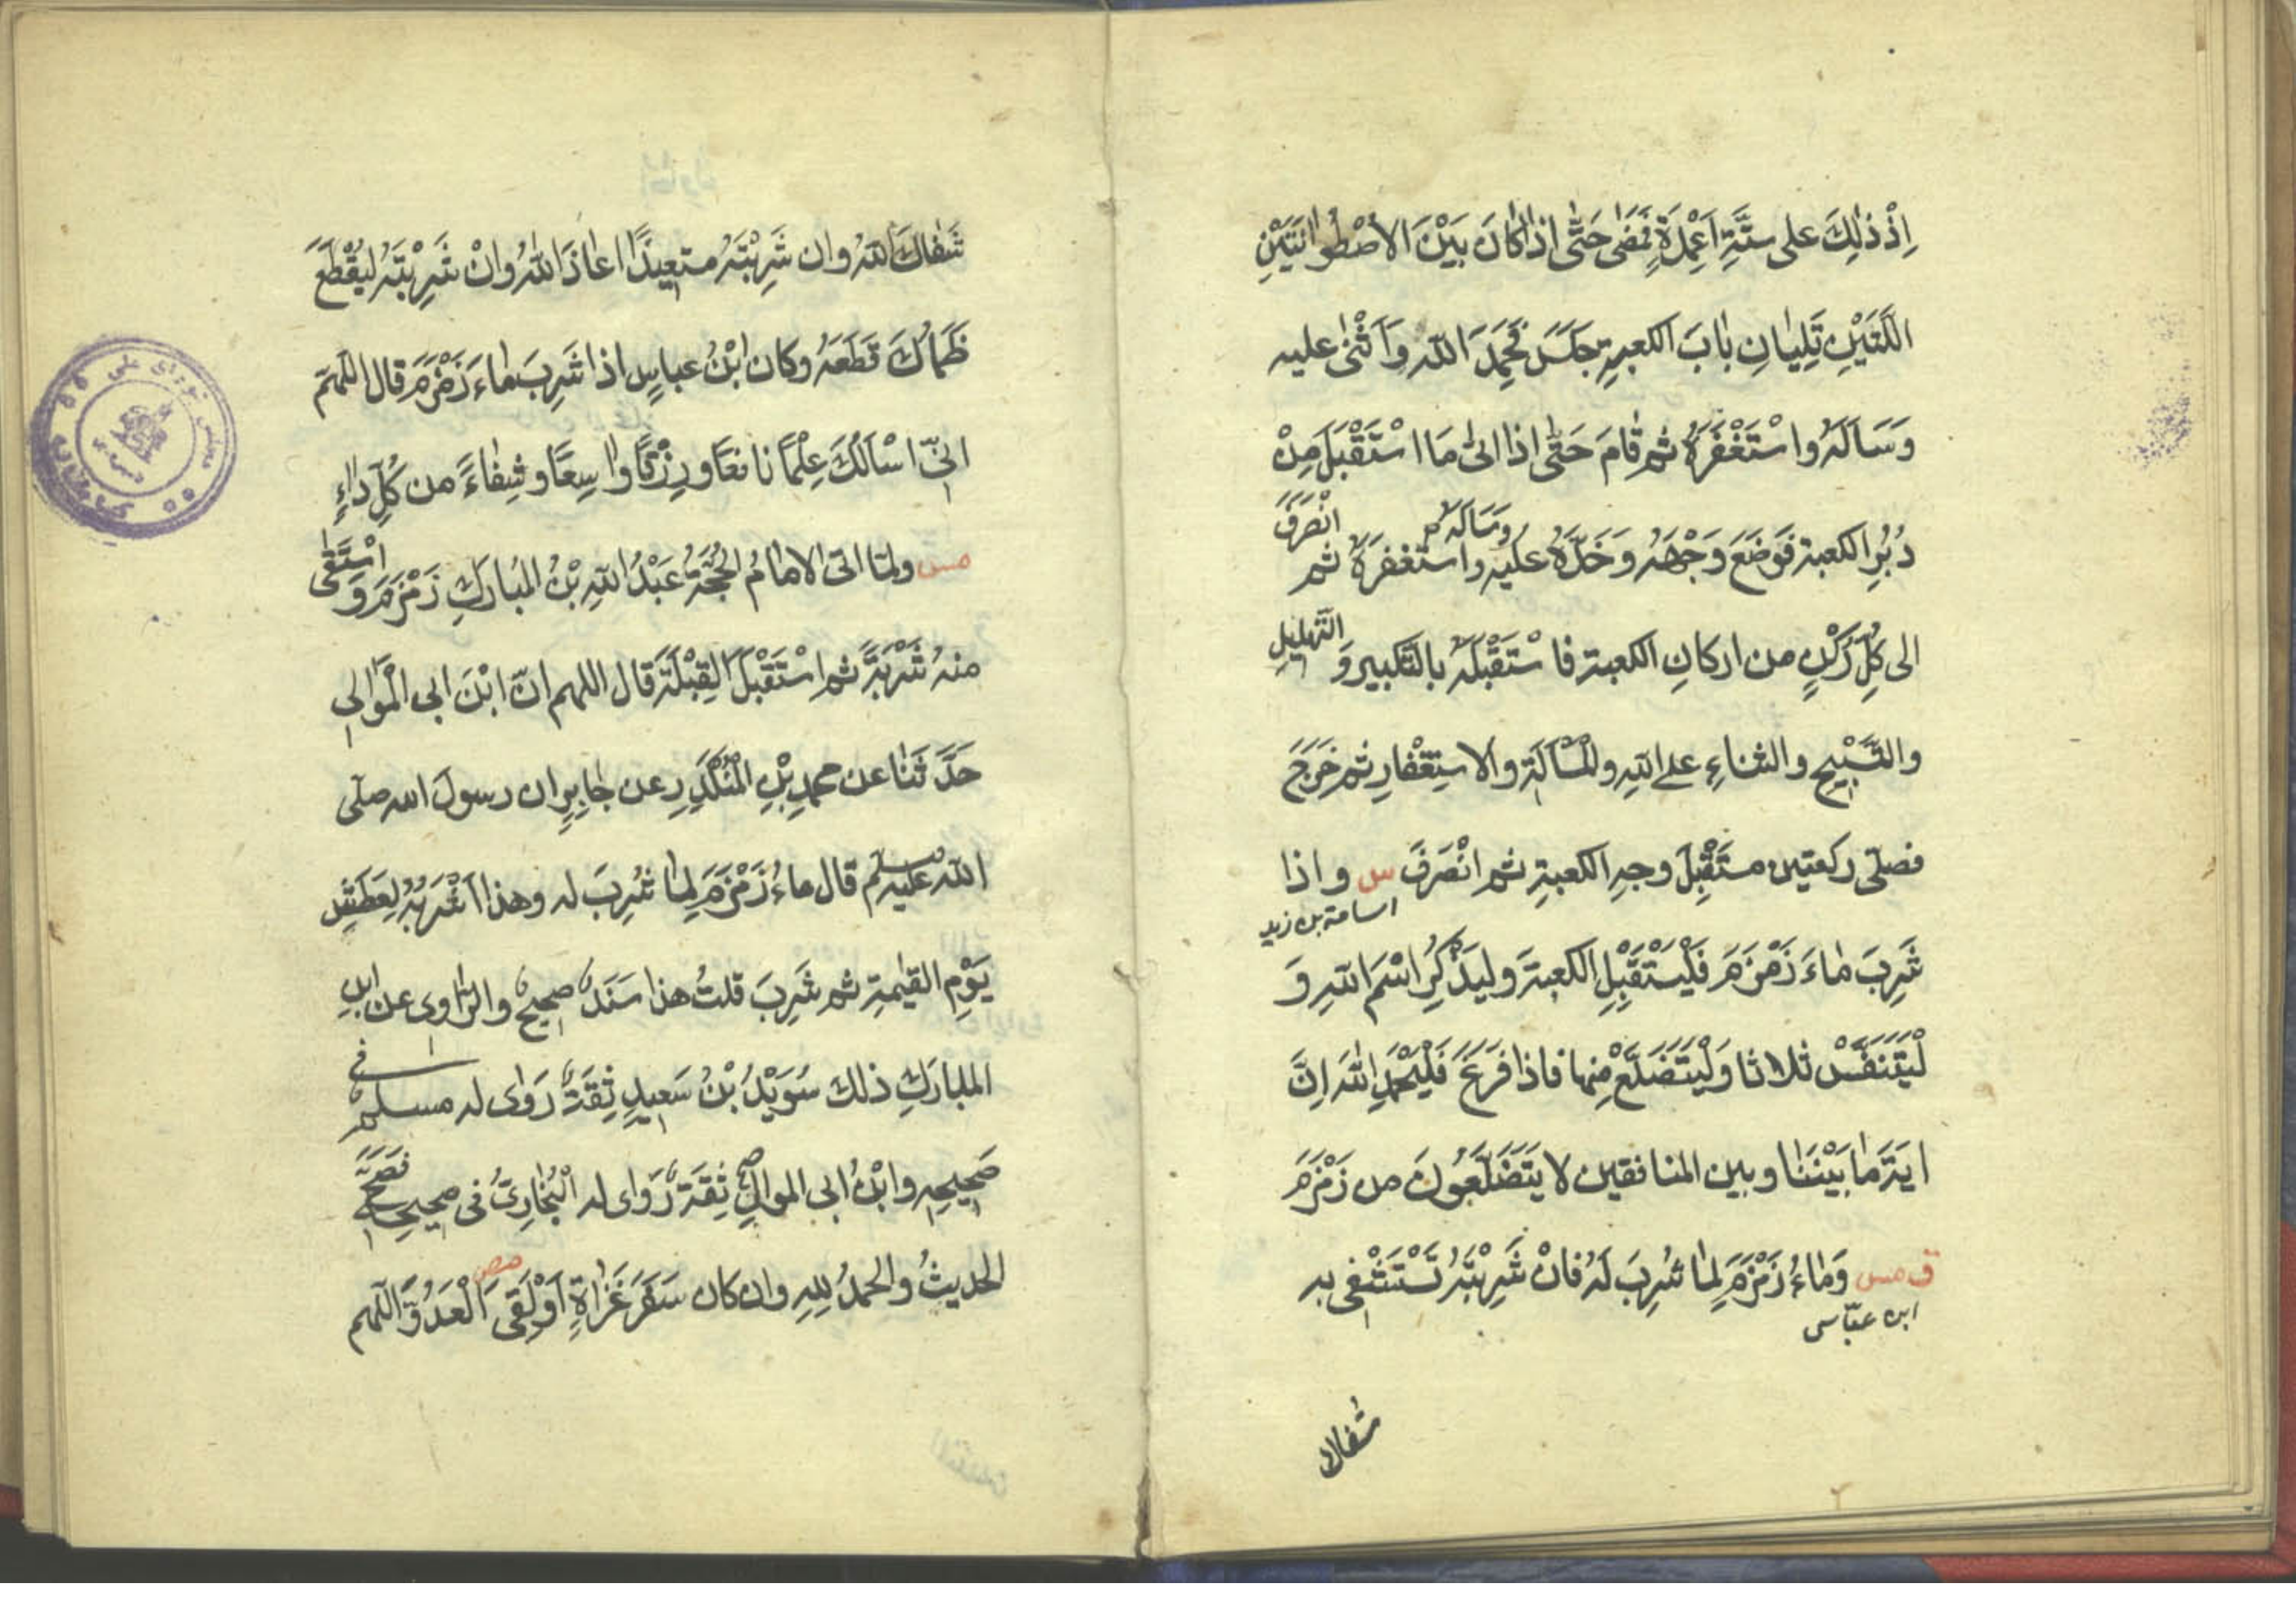 اِذْ ذٰلِكَ على ستَّةِ اَعْمِدَةٍ فَمَضٰى حَتّٰى اذا كَانَ بَيْنَ الاُصْطُوانَتَيْنِ
اللَّتَيْنِ تَلِيَانِ بَابَ الكعبةِ جَلَسَ فَحَمِدَ اللّٰهَ وَاَثْنٰى عليه
وَسَاَلَهُ واسْتَغْفَرَهُ ثم قَامَ حَتّٰى اذا اتٰى مَا اسْتَقْبَلَ مِنْ
دُبُرِ الكعبة فَوَضَعَ وَجْهَهُ وَخَدَّهُ عَلَيْهِ وَسَاَلَهُ واستغفرَهُ ثم انْصَرَفَ
الى كُلِّ رُكْنٍ من اركانِ الكعبة فاسْتَقْبَلَهُ بالتَّكبيرِ وَ التَّهْلِيلِ
والتَّسْبِيْحِ والثناءِ على اللّٰهِ والْمَسْاَلَةِ والاسْتِغْفارِ ثم خَرَجَ
فصلّى ركعتين مستَقْبِلَ وجهِ الكعبةِ ثم انْصَرَفَ س واذا
اسامة بن زيد
شَرِبَ مَاءَ زَمْزَمَ فَلْيَسْتَقْبِلِ الكعبةَ وليَذْكُرِ اسْمَ اللّٰهِ وَ
لْيَتَنَفَّسْ ثلاثا وَلْيَتَضَلَّعْ مِنها فاذا فَرَغَ فَلْيَحْمَدِ اللّٰهَ اِنَّ
ايَةَ مَا بَيْنَنَا وبين المنافقين لا يَتَضَلَّعُونَ من زَمْزَمَ
ق مس وَمَاءُ زَمْزَمَ لِمَا شُرِبَ لَهُ فانْ شَرِبْتَهُ تَسْتَشْفِى به
ابن عبّاس
شفاك
شَفَاكَ اللّٰهُ وان شَرِبْتَهُ مستعِيذًا اعاذَكَ اللّٰهُ وانْ شَرِبْتَهُ لِيَقْطَعَ
ظَمَأَكَ قَطَعَهُ وكان ابْنُ عباسٍ اذا شَرِبَ مَاءَ زَمْزَمَ قال اللّٰهمّ
انّى اسْاَلُكَ عِلْمًا نافعًا ورِزْقًا واسِعًا وشِفَاءً من كُلِّ دَاءٍ
مس ولمّا اتى الامَامُ الحُجَّةُ عَبْدُ اللّٰهِ بْنُ المُبارَكِ زَمْزَمَ وَ اسْتَقٰى
منهُ شَرْبَةً ثم اسْتَقْبَلَ الْقِبْلَةَ قال اللهم انّ ابْنَ ابى الْمَوَالِى
حَدَّثَنَا عن محمدِ بْنِ الْمُنْكَدِرِ عن جَابِرٍ ان رسولَ الله صلّى
اللّٰهُ عليه وسلّم قال ماءُ زَمْزَمَ لِمَا شُرِبَ له وهذا اَشْرَبُهُ لِعَطَشِ
يَوْمِ القيٰمةِ ثم شَرِبَ قلتُ هذا سَنَدٌ صحيحٌ والرّاوى عن ابنِ
المبارَكِ ذلك سُوَيْدُ بْنُ سَعيدٍ ثِقَةٌ رَوٰى له مسلمٌ فى
صَحِيحِهِ وابْنُ ابى الموالِ ثِقَةٌ رَوٰى له الْبُخَارِىُّ فى صحيحِهِ فَصَحَّ
الحديثُ والحمدُ للهِ وان كان سَفَرَ غَزَاةٍ اَوْ لَقِىَ الْعَدُوَّ اللّٰهم
مص